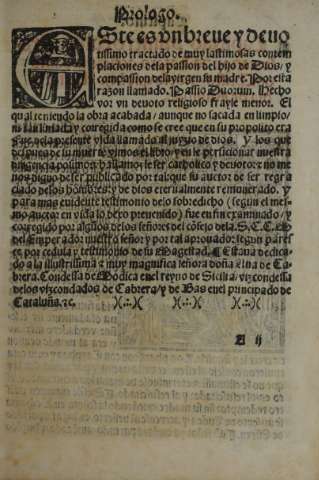 Prologo.
Este es vn breue y deuo
tissimo tractado de muy lastimosas contem
placiones de la passion del hijo de Dios/ y
compassion dela virgen su madre. Por esta
razon llamado. Passio Duorum. Hecho
por vn deuoto religioso frayle menor. El
qual teniendo la obra acabada / aunque no sacada en limpio/
ni tan limada y corregida como se cree que en su proposito era
Fue dela presente vida llamado al juyzio de dios. Y los que
despues de su muerte vimos el libro / y en le perficionar nuestra
diligencia posimos / hallamos le ser catholico y deuoto: y no me
nos digno de ser publicado por tal que su auctor de ser regra
ciado delos hombres/ y de dios eternalmente remunerado. y
para mas euidente testimonio delo sobredicho (segun el mes
mo auctor en vida lo dexo preuenido) fue en fin examinado / y
corregido por algunos delos señores del cõsejo dela. S.C.C.M.
del Emperador nuestro señor y por tal aprouado: segun pares
ce por cedula y testimonio de su Magestad. ¶ Esta dedica
do a la illustrissima y muy magnifica señora doña Ana de Ca
brera. Condessa de Modica en el reyno de Sicilia / vizcondessa
delos vizcondados de Cabrera/ y de Bas en el principado de
Cataluña. ⁊c.
A ij